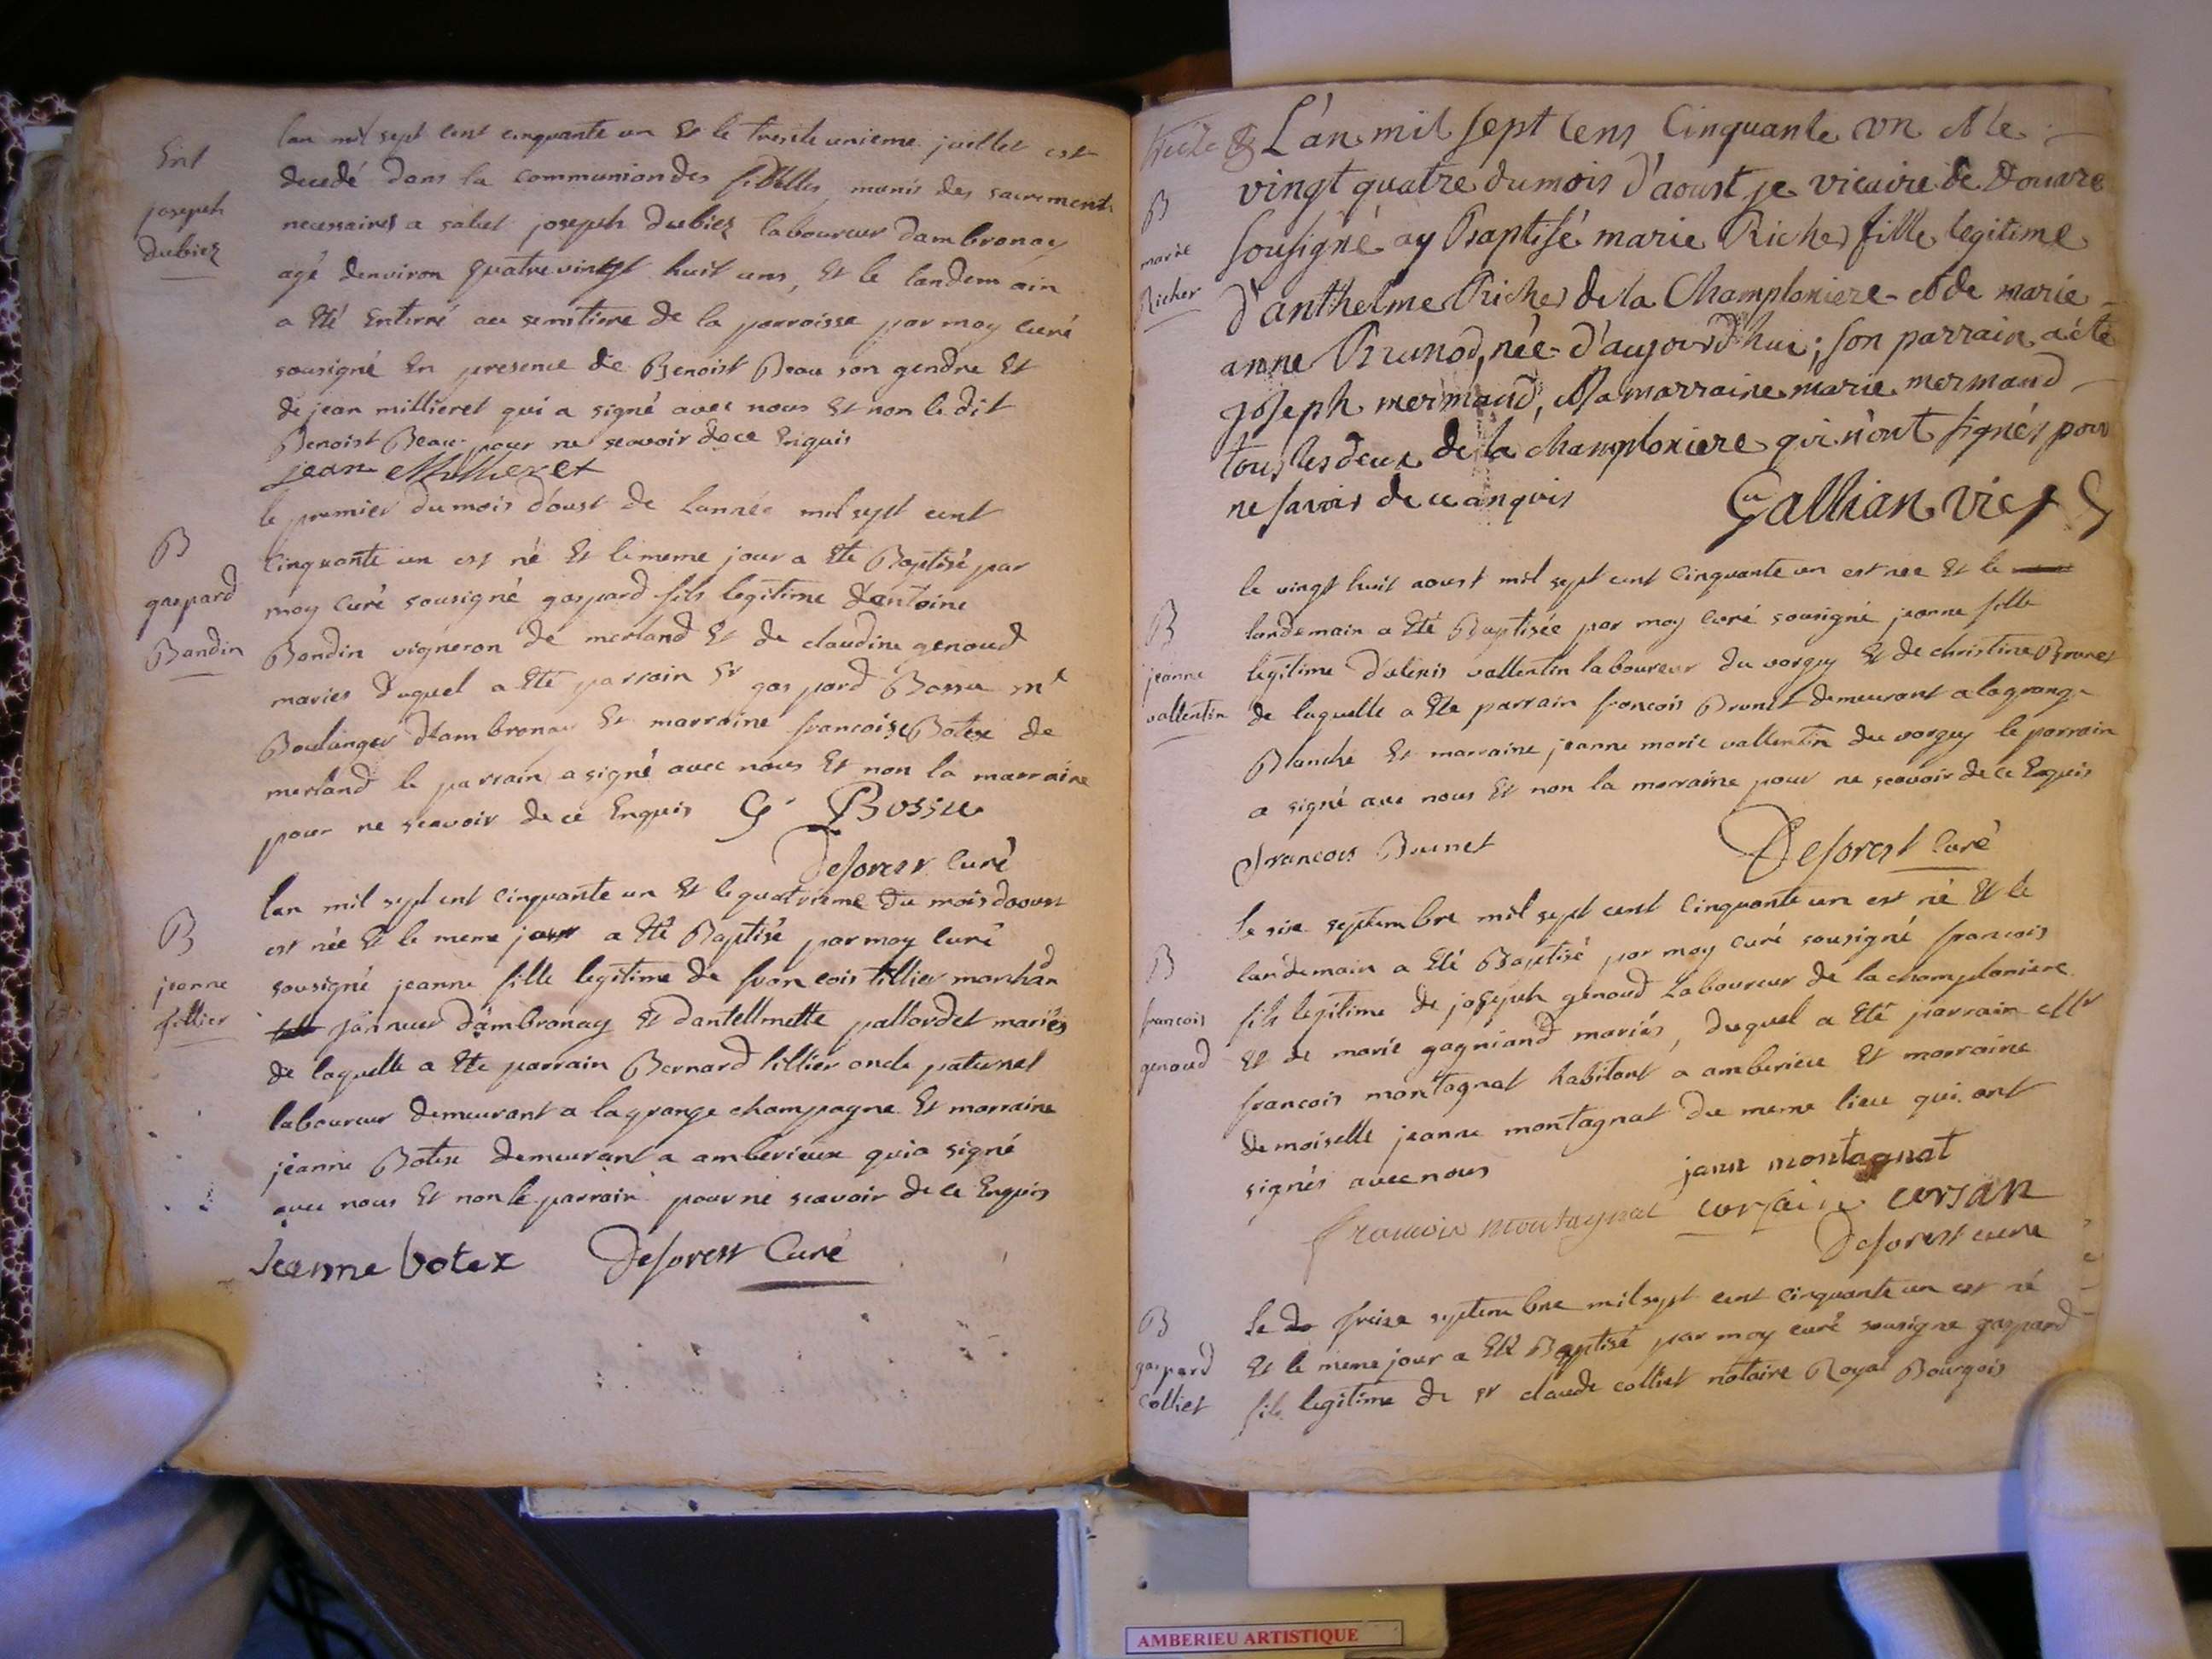 Ent
joseph
dubiez
lan mil sept cent cinquante un Et le trente unieme juillet est
decedé dans la communion des fidelles, munis des sacrements
necessaires a salut joseph dubiez laboureur dambronay
agé denviron quatrevingt huit ans, Et le landemain
a Eté Enterré au semitiere de la parroisse par moy curé
sousigné En presence de Benoist Beau son gendre Et
de jean millieret qui a signé avec nous Et non le dit
Benoist Beau pour ne scavoir de ce Enquis
jean Millieret
B
gaspard
Bandin
le premier du mois d'oust de Lannée mil sept cent
cinquante un est né Et le meme jour a Eté Baptisé par
moy curé sousigné gaspard fils legitime dantoine
Bandin vigneron de merland Et de claudine genoud
mariés duquel a Eté parrain sr gaspard Bossu me
Boulanger dambronay Et marraine francoise Botex de
merland le parrain a signé avec nous Et non la marraine
pour ne scavoir de ce Enquis G Bossu
Deforest Curé
B
jeanne
tillier
lan mil sept cent cinquante un Et le quatrieme du mois daoust
est née Et le meme jour a Eté Baptisé par moy curé
sousigné jeanne fille legitime de francois tillier marchand
dambronay Et dantellmette pallordet mariés
de laquelle a Ete parrain Bernard tillier oncle paternel
laboureur demeurant a lagrange champagne Et marraine
jeanne Botex demeurant a amberieux qui a signé
avec nous Et non le parrain pour ne scavoir de ce Enquis
Jeanne botex Deforest Curé
B
marie
Richer
L'an mil sept cens Cinquante un et le
vingt quatre du mois d'aoust je vicaire de Douvre
sousigné ay Baptisé marie Richer fille legitime
d'anthelme Richer de la Champloniere et de marie
anne Brunod, née d'aujourd'hui; son parrain a été
joseph mermand, et sa marraine marie mermand
tous les deux de la champloniere qui n'ont signés pour
ne savoir de ce anquis Gallian vic
B
jeanne
vallentin
le vingt huit aoust mil sept cent cinquante un est née Et le
landemain a Eté Baptisée par moy curé sousigné jeanne fille
legitime d'alexis vallentin laboureur du vorgey Et de christine Brunet
de laquelle a Ete parrain francois Brunet demeurant a lagrange
Blanche Et marraine jeanne marie vallentin du vorgey le parrain
a signé avec nous Et non la marraine pour ne scavoir de ce Enquis
francois Brunet Deforest Curé
B
francois
genoud
le six septembre mil sept cent cinquante un est né Et le
landemain a Eté Baptisé par moy curé sousigné francois
fils legitime de joseph genoud Laboureur de la champloniere
Et de marie gagniand mariés, duquel a Eté parrain Mr
francois montagnat habitant a amberieu Et marraine
demoiselle jeanne montagnat du meme lieu qui ont
signés avec nous jann montagnat
francois montagnat corsain corsan
Deforest curé
B
gaspard
Colliet
le treize septembre mil sept cent cinquante un est né
Et le meme jour a Eté Baptisé par moy curé sousigné gaspard
fils legitime de sr claude colliet notaire Royal Bourgois
AMBERIEU ARTISTIQUE